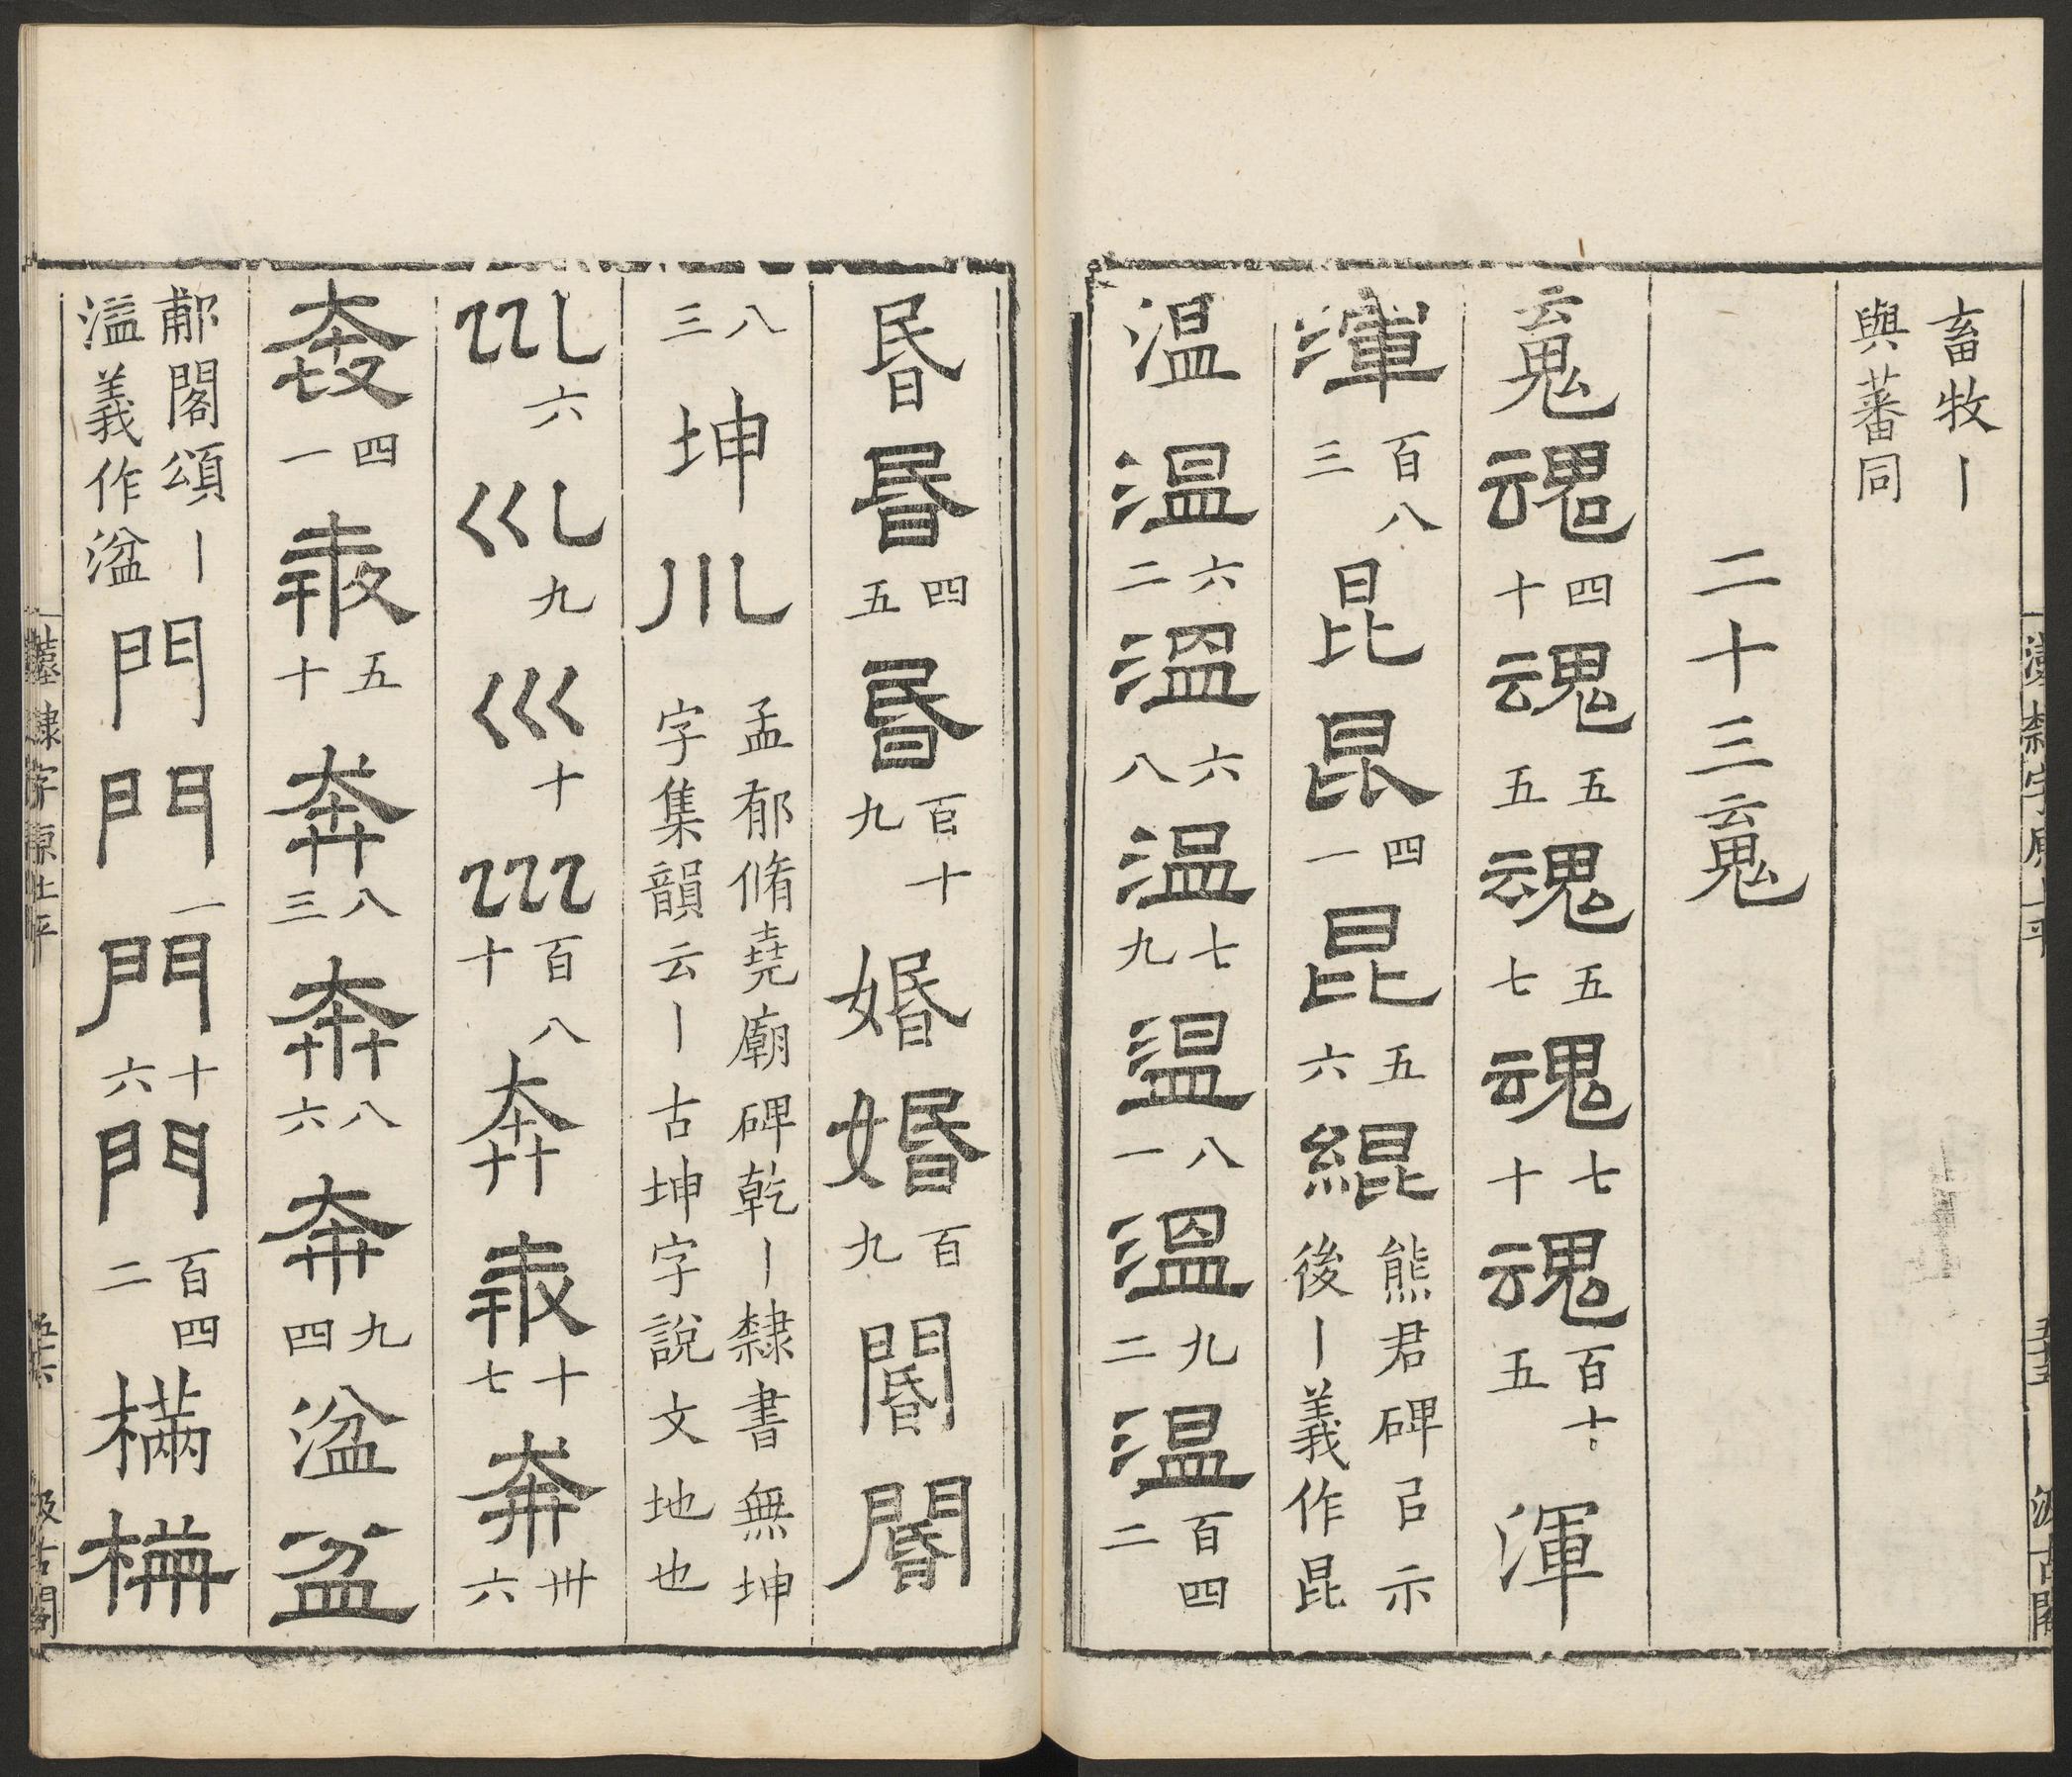 漢隸字原上平 五十五 汲古閣
畜牧丨
與蕃同
二十三䰟
䰟 魂 四十 魂 五五 魂 五七 魂 七十 魂 百十五 渾
渾 百八三 昆 昆 四一 昆 五六 緄 熊君碑㠯示後丨義作昆
温 温 六二 溫 六八 温 七九 温 八一 溫 九二 温 百四二
昬 昬 四五 昬 百十九 婚 婚 百九 閽 閽
八三 坤 川 孟郁脩堯廟碑乾丨隸書無坤字集韻云丨古坤字說文地也
巛 六 巛 九 巛 十 巛 百八十 奔 奔 十七 奔 卅六
奔 四一 奔 五十 奔 八三 奔 八六 奔 九四 湓 盆
郙閣頌丨溢義作湓 門 門 一 門 十六 門 百四二 樠 樠
漢隸字原上平 五十六 汲古閣